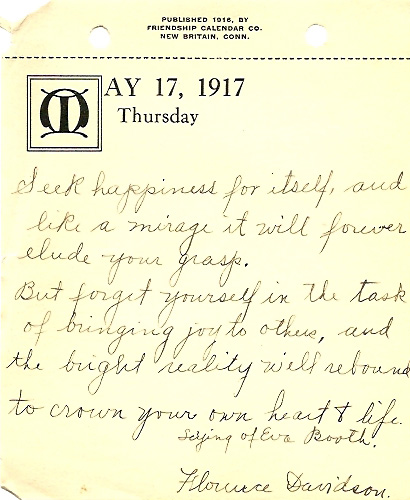 PUBLISHED 1916, BY
FRIENDSHIP CALENDAR CO.
NEW BRITAIN, CONN.
MAY 17, 1917
Thursday
Seek happiness for itself, and
like a mirage it will forever
elude your grasp.
But forget yourself in the task
of bringing joy to others, and
the bright reality will rebound
to crown your own heart & life.
Saying of Eva Booth.
Florence Davidson.